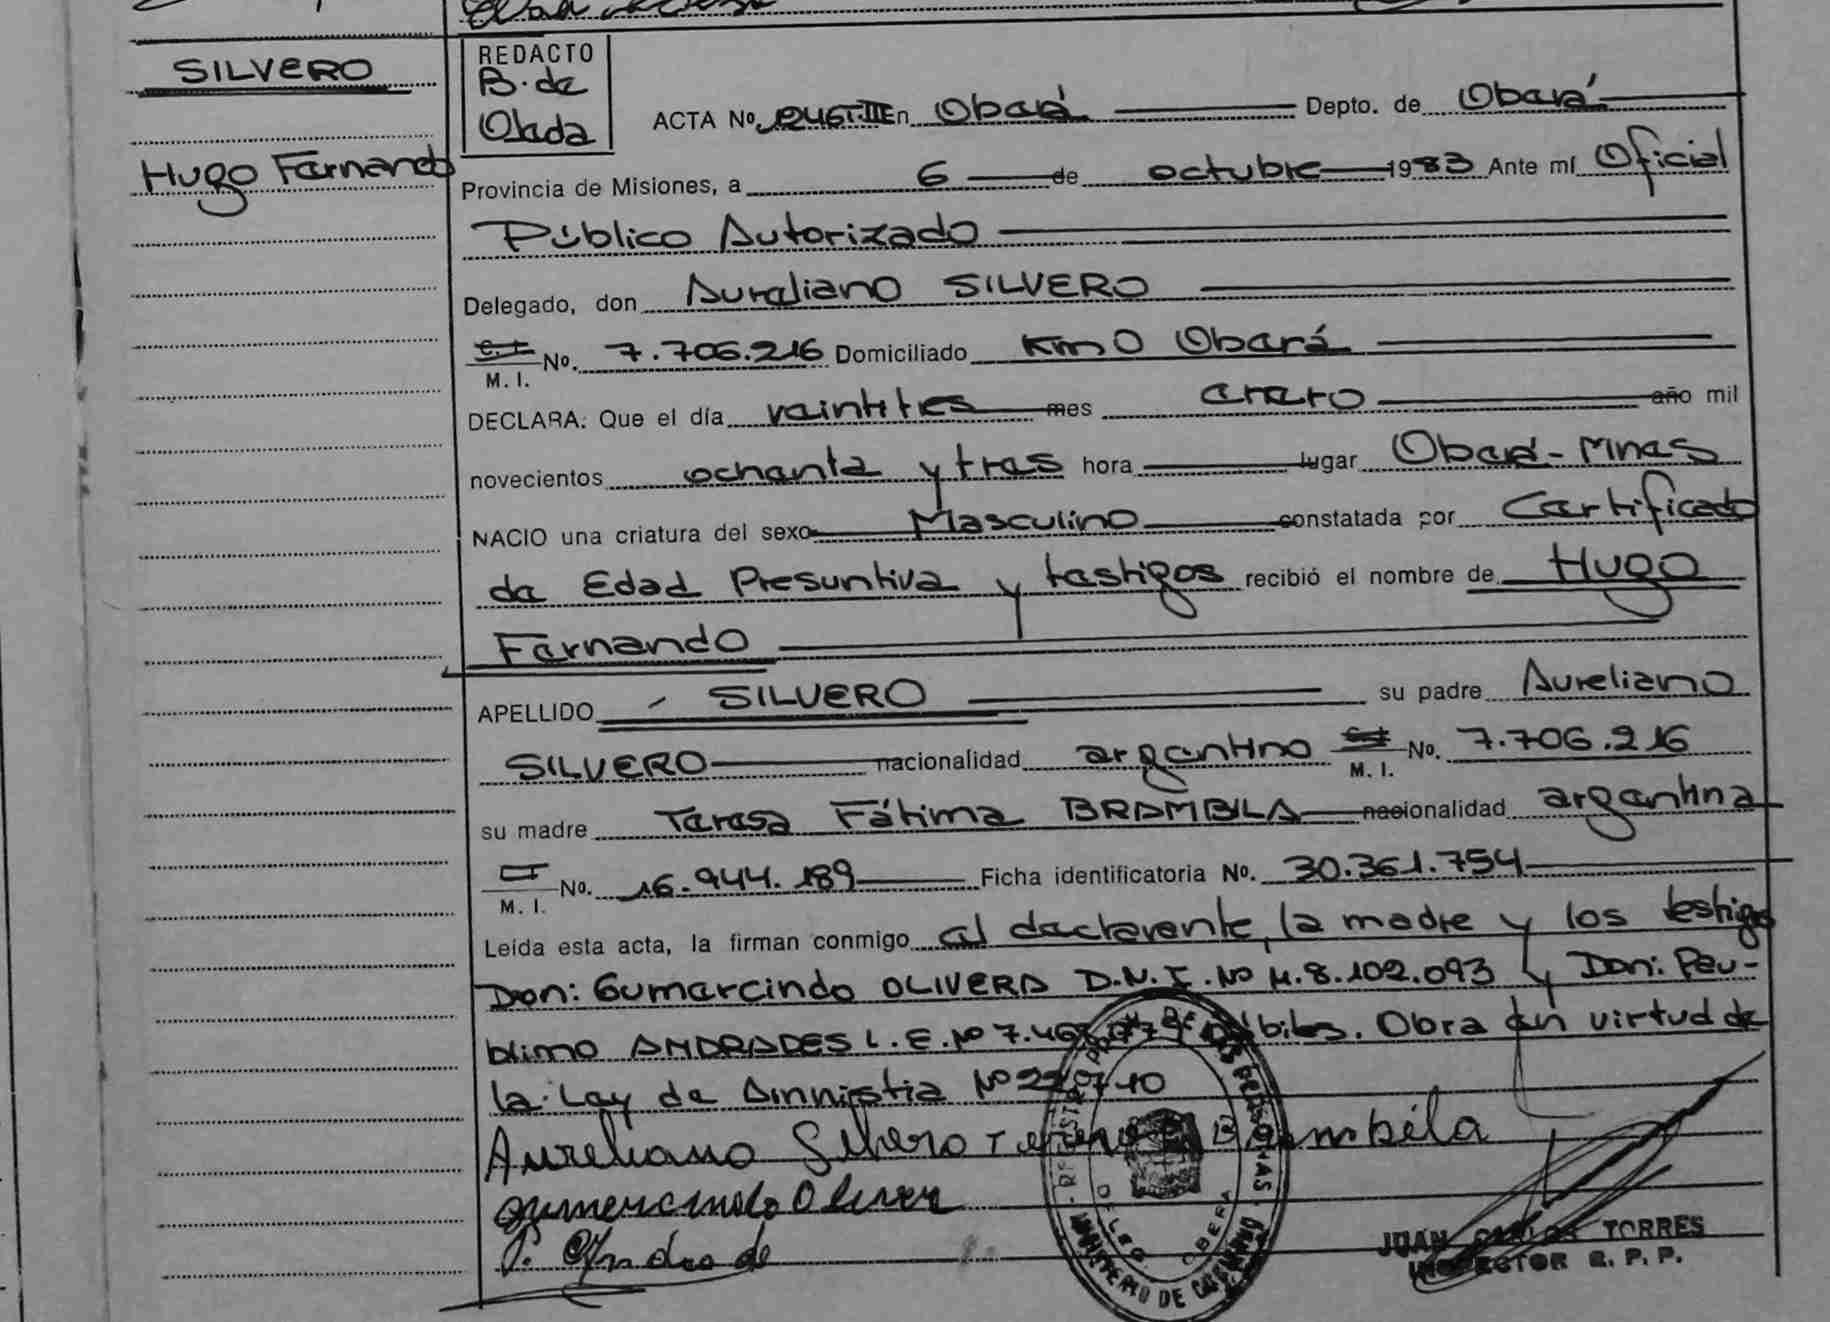 SILVERO
Hugo Fernando
REDACTO
B. de
Olada
ACTA No. 246T.III En Oberá Depto. de Oberá
Provincia de Misiones, a 6 de octubre 1983 Ante mí Oficial
Público Autorizado
Delegado, don Aureliano SILVERO
C.I. No. 7.706.216 Domiciliado Km 0 Oberá
M. I.
DECLARA: Que el día veintitres mes enero año mil
novecientos ochenta y tres hora lugar Oberá - Mnes
NACIO una criatura del sexo Masculino constatada por Certificado
de Edad Presuntiva y testigos recibió el nombre de Hugo
Fernando
APELLIDO SILVERO su padre Aureliano
SILVERO nacionalidad argentino No. 7.706.216
M. I.
su madre Teresa Fátima BRAMBILA nacionalidad argentina
No. 16.944.189 Ficha identificatoria No. 30.361.754
M. I.
Leída esta acta, la firman conmigo el declarente, la madre y los testigos
Don: Gumercindo OLIVERA D.N.I. Nº M.8.102.093 y Don: Pau-
blimo ANDRADES L.E. Nº 7.46 hábiles. Obra en virtud de
la Ley de Amnistia Nº 22.0710
Aureliano Silvero Teresa F Brambila
Gumercindo Oliver
P. Andrade
MINISTERIO DE GOBIERNO
OBERA
JUAN CARLOS TORRES
INSPECTOR R. P. P.